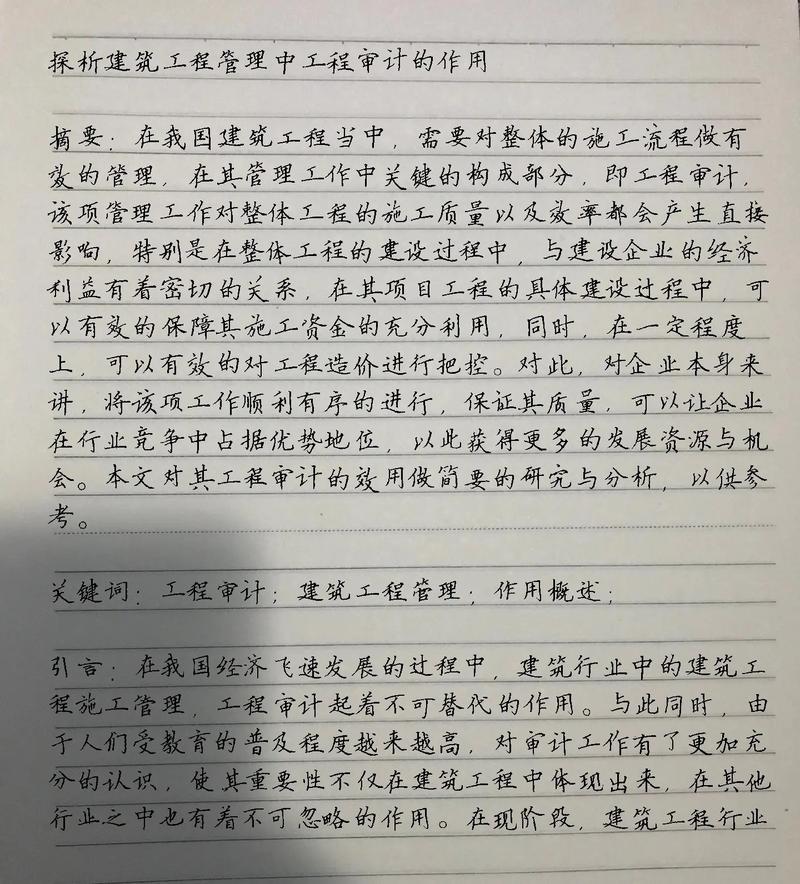 探析建筑工程管理中工程审计的作用
摘要：在我国建筑工程当中，需要对整体的施工流程做有
效的管理，在其管理工作中关键的构成部分，即工程审计，
该项管理工作对整体工程的施工质量以及效率都会产生直接
影响，特别是在整体工程的建设过程中，与建设企业的经济
利益有着密切的关系，在其项目工程的具体建设过程中，可
以有效的保障其施工资金的充分利用，同时，在一定程度
上，可以有效的对工程造价进行把控。对此，对企业本身来
讲，将该项工作顺利有序的进行，保证其质量，可以让企业
在行业竞争中占据优势地位，以此获得更多的发展资源与机
会。本文对其工程审计的效用做简要的研究与分析，以供参
考。
关键词：工程审计；建筑工程管理；作用概述；
引言：在我国经济飞速发展的过程中，建筑行业中的建筑工
程施工管理，工程审计起着不可替代的作用。与此同时，由
于人们受教育的普及程度越来越高，对审计工作有了更加充
分的认识，使其重要性不仅在建筑工程中体现出来，在其他
行业之中也有着不可忽略的作用。在现阶段，建筑工程行业